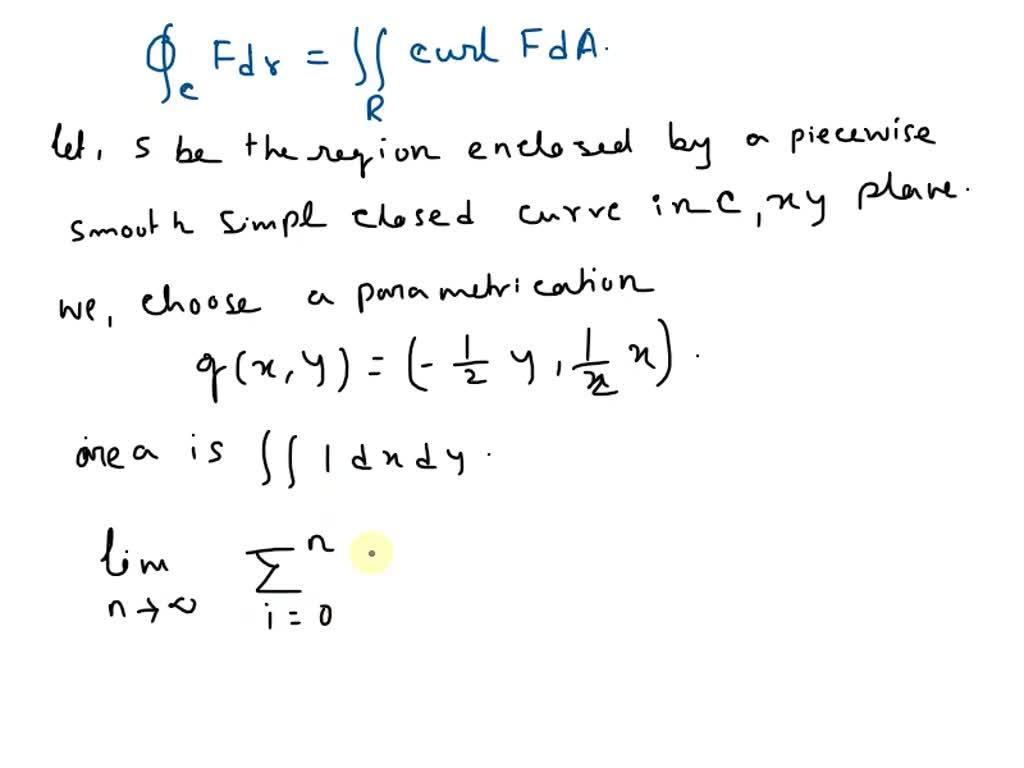 ∮_C Fdr = ∬_R curl FdA.
let, s be the region enclosed by a piecewise
smooth simpl closed curve in C, xy plane.
we, choose a parametrication
q(x, y) = (-1/2 y, 1/2 x).
area is ∬ 1 dx dy.
lim n→∞ ∑ i=0 n